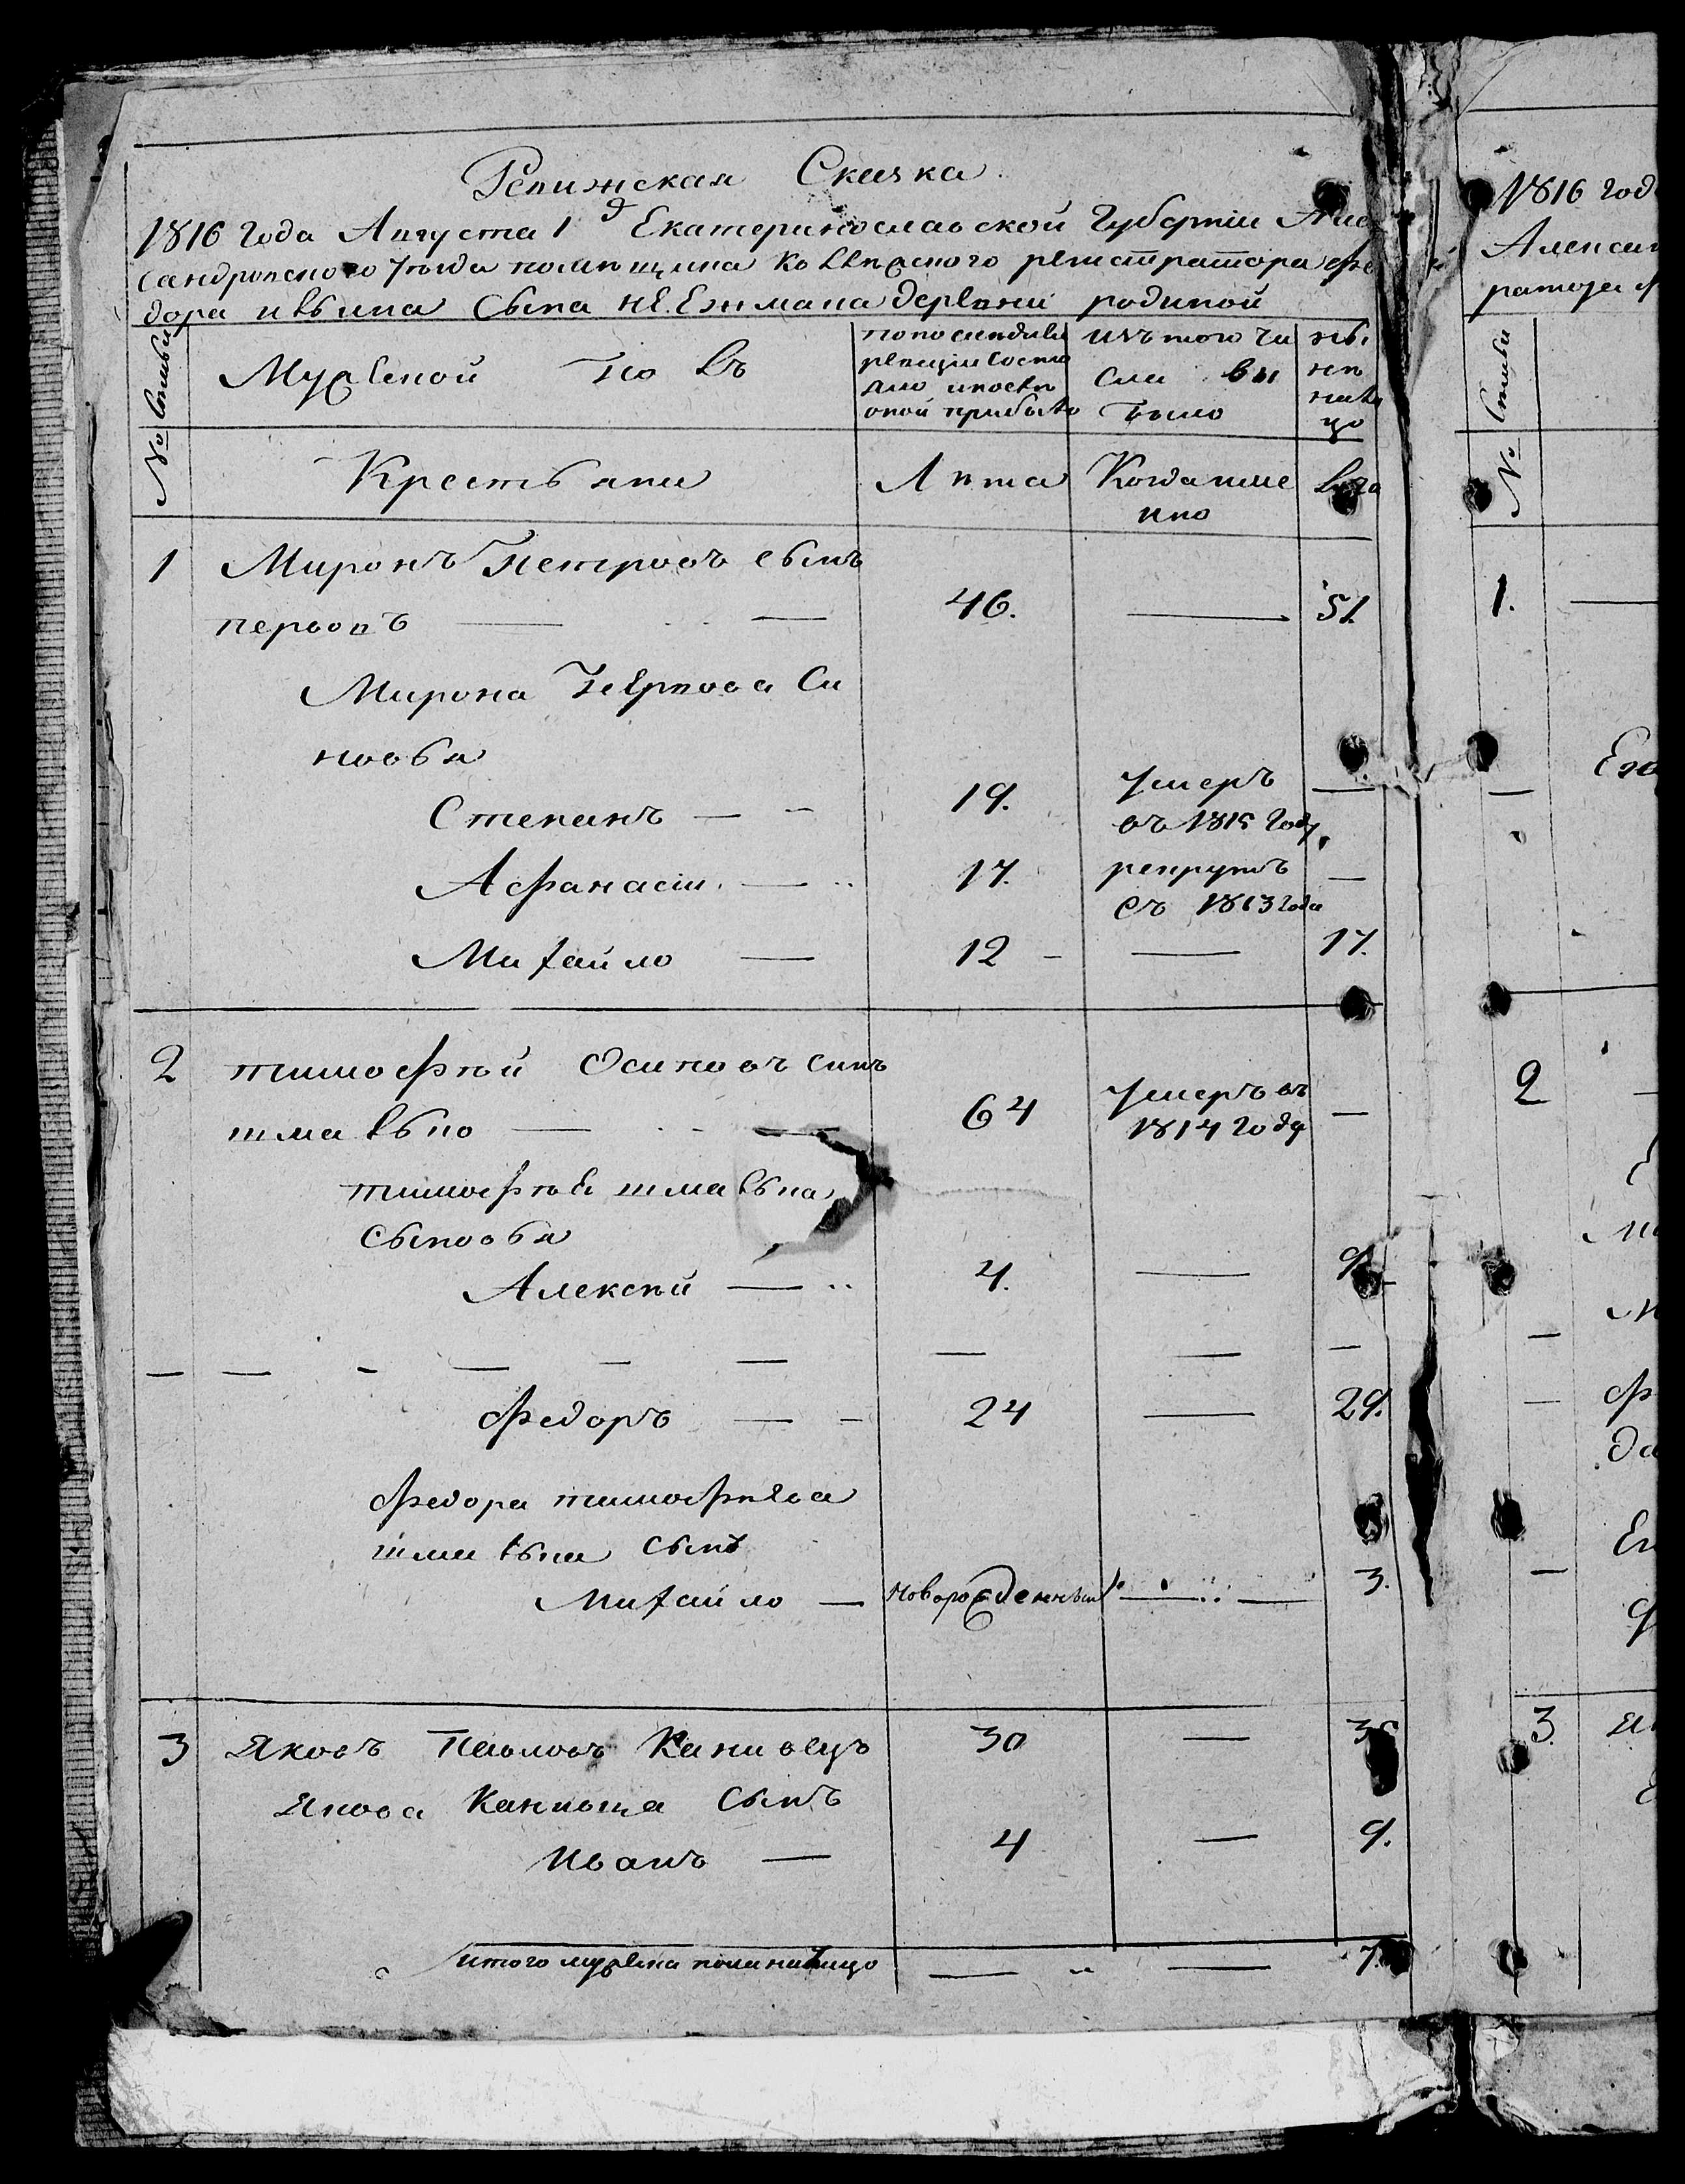 Ревижская Скаска
1816 года Августа 1 д Екатеринославской Губернии Алек
сандровского уезда помещика коллежского регистратора Фе
дора ивана Сына деревни родиной
№ Семьи
Мужеской полъ
по последней
ревизии состо
яло и после
оной прибыло
изъ того чи
сла вы
было
ны
не
нали
цо
Крестьяни
Лета
Когда име
нно
Лета
1 Миронъ Петровъ сынъ
46. 51.
Мирона Сы
новья
Степанъ 19. Умеръ
въ 1815 Году
Афанасий 17. рекрутъ
съ 1813 Года
Михайло 12 17.
2 тимофей Осиповъ синъ
64 Умеръ въ
1814 году
тимофея
Сыновья
Алексей 4. 9.
Федоръ 24 29.
Федора тимофеева
сынъ
Михайло Новорожденный 3.
3 Яковъ Павловъ Канивецъ 30 35
Якова Канивца Сынъ
Иванъ 4 9.
итого мужеска пола налицо 7.
1816 год
Алексан
ратора
№ Семьи
1.
2
3